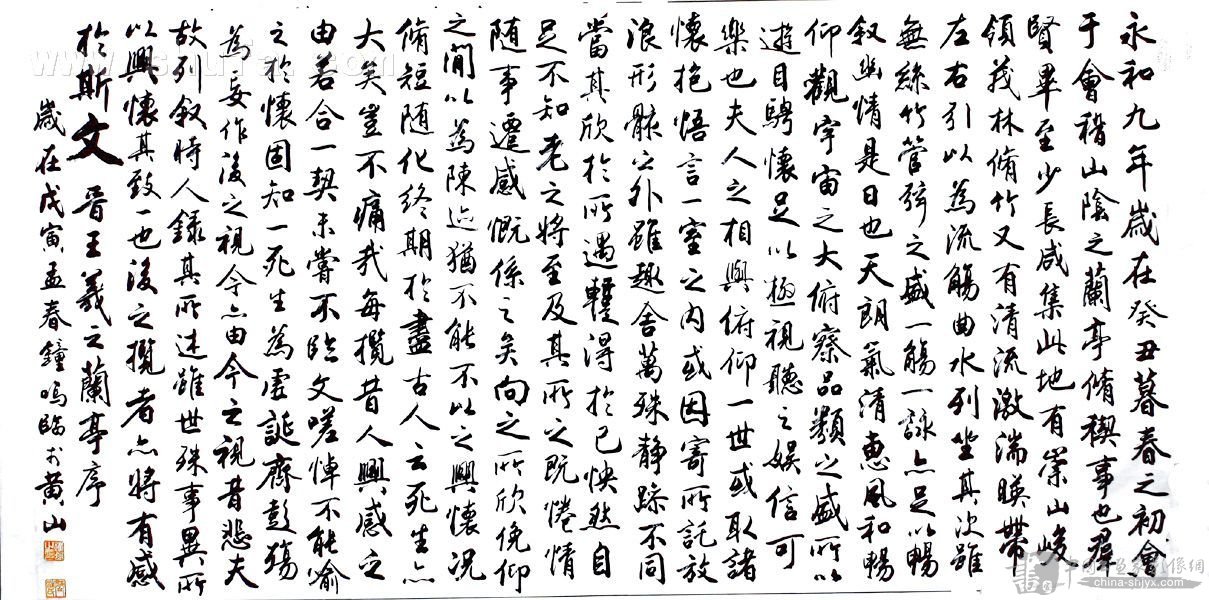 永和九年歲在癸丑暮春之初會
于會稽山陰之蘭亭脩稧事也羣
賢畢至少長咸集此地有崇山峻
領茂林脩竹又有清流激湍暎帶
左右引以為流觴曲水列坐其次雖
無絲竹管弦之盛一觴一詠亦足以暢
叙幽情是日也天朗氣清惠風和暢
仰觀宇宙之大俯察品類之盛所以
遊目騁懷足以極視聽之娛信可
樂也夫人之相與俯仰一世或取諸
懷抱悟言一室之內或因寄所託放
浪形骸之外雖趣舍萬殊静躁不同
當其欣於所遇蹔得於己怏然自
足不知老之將至及其所之既惓情
随事遷感慨係之矣向之所欣俛仰
之閒以為陳迹猶不能不以之興懷況
脩短随化終期於盡古人云死生亦
大矣豈不痛哉每攬昔人興感之
由若合一契未嘗不臨文嗟悼不能喻
之於懷固知一死生為虛誕齊彭殤
為妄作後之視今亦由今之視昔悲夫
故列叙時人錄其所述雖世殊事異所
以興懷其致一也後之攬者亦將有感
於斯文 晋王羲之蘭亭序
歲在戊寅孟春鐘鳴臨於黄山
china-shjyx.com